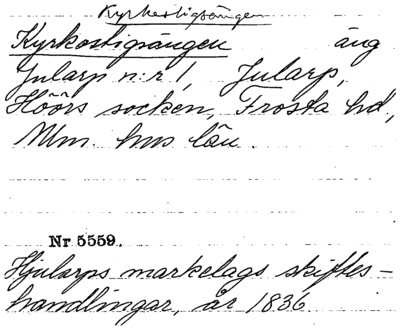 Kyrkestigsängen
Kyrkostigsängen äng
Jularp n:r 1, Jularp,
Höörs socken, Frosta hd,
Mlm. hus län.
Nr 5559.
Hjularps markelags skiftes-
handlingar, år 1836.